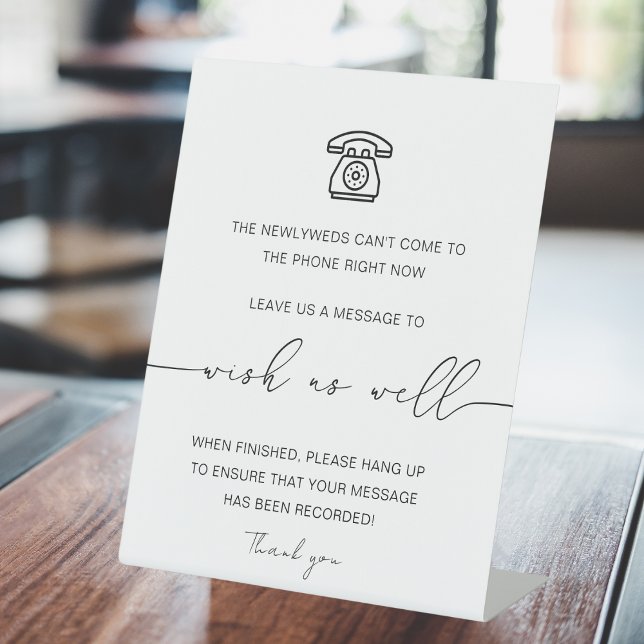 THE NEWLYWEDS CAN'T COME TO
THE PHONE RIGHT NOW
LEAVE US A MESSAGE TO
wish us well
WHEN FINISHED, PLEASE HANG UP
TO ENSURE THAT YOUR MESSAGE
HAS BEEN RECORDED!
Thank you